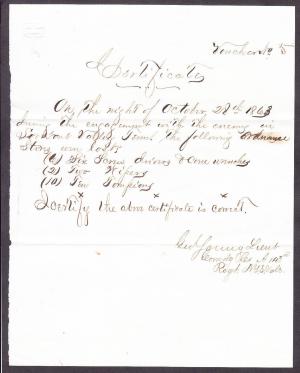 Voucher No 5
Certificate
On the night of October 28th 1863
during the engagement with the enemy in
Lookout Valley Tenn, the following Ordnance
Stores were lost:
(6) Six Screw drivers & Cone wrenches
(2) Two Wipers
(10) Ten Tompions
I certify the above certificate is correct.
Geo Young Lieut
Comdg Co A 143rd
Regt N.Y. Vols.